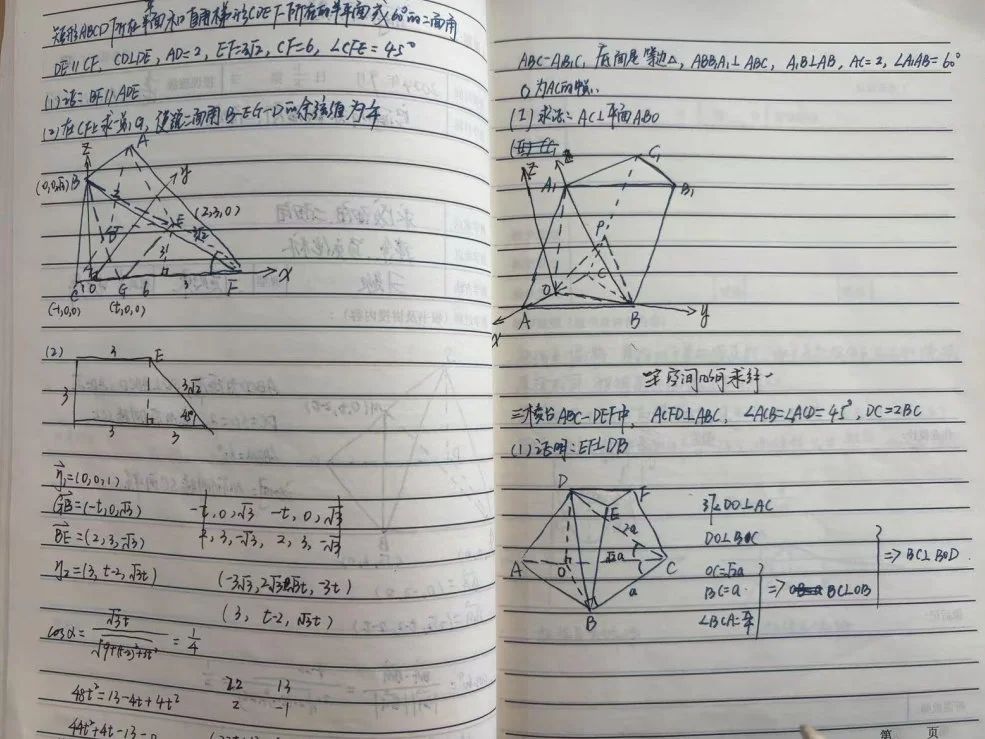 矩形ABCD所在平面和直角梯形CDEF所在的半平面成60°的二面角
DE∥CF, CD⊥DE, AD=2, EF=3√2, CF=6, ∠CFE=45°
(1)证: BF∥ADE
(2)在CF上求一点G, 使锐二面角B-EG-D的余弦值为1/4
z
A
B
(0,0,√3)
y
2
E
(2,3,0)
3√2
3
C
1
O
G
6
3
F
x
(-1,0,0)
(t,0,0)
(2)
3
E
3
3√2
45°
3
3
η₁=(0,0,1)
GB=(-t,0,√3)
-t, 0, √3 -t, 0, √3
BE=(2,3,-√3)
2, 3, -√3, 2, 3, -√3
η₂=(3, t-2, √3t)
(-3√3, 2√3-√3t, -3t)
(3, t-2, √3t)
cosα= √3t / √9+(t-2)²+3t² = 1/4
48t²=13-4t+4t²
22 13
2 -1
44t²+4t-13=0
ABC-A₁B₁C₁ 底面是等边△, ABB₁A₁⊥ABC, A₁B⊥AB, AC=2, ∠A₁AB=60°
O为AC的中点
(I)求证: AC⊥平面A₁BO
z
C₁
A₁
B₁
P
C
O
A
B
x
y
空间几何求解一
三棱台ABC-DEF中, ACFD⊥ABC, ∠ACB=∠ACD=45°, DC=2BC
(1)证明: EF⊥DB
D
F
E
2a
√2a
A
O
C
a
B
取DO⊥AC
DO⊥BC
OC=√2a
BC=a
⇒ BC⊥OB
∠BCA=π/4
⇒ BC⊥BOD
第 页